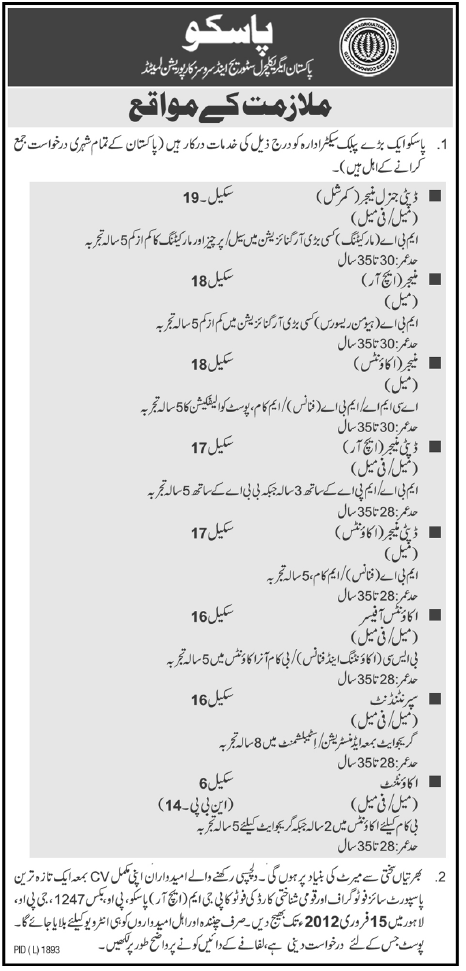 پاسکو
پاکستان ایگریکلچرل سٹوریج اینڈ سروسز کارپوریشن لمیٹڈ
ملازمت کے مواقع
1. پاسکو ایک بڑے پبلک سیکٹر ادارہ کو درج ذیل کی خدمات درکار ہیں (پاکستان کے تمام شہری درخواست جمع
کرانے کے اہل ہیں)۔
■ ڈپٹی جنرل منیجر (کمرشل) سکیل۔19
(میل/فی میل)
ایم بی اے (مارکیٹنگ) کسی بڑی آرگنائزیشن میں سیل/پرچیز اور مارکیٹنگ کا کم از کم 5 سالہ تجربہ
حد عمر: 30 تا 35 سال
■ منیجر (ایچ آر) سکیل 18
(میل)
ایم بی اے (ہیومن ریسورس) کسی بڑی آرگنائزیشن میں کم از کم 5 سالہ تجربہ
حد عمر: 30 تا 35 سال
■ منیجر (اکاؤنٹس) سکیل 18
(میل)
اے سی ایم اے/ایم بی اے (فنانس)/ایم کام، پوسٹ کوالیفکیشن کا 5 سالہ تجربہ
حد عمر: 30 تا 35 سال
■ ڈپٹی منیجر (ایچ آر) سکیل 17
(میل/فی میل)
ایم بی اے/ایم پی اے کے ساتھ 3 سالہ جبکہ بی بی اے کے ساتھ 5 سالہ تجربہ
حد عمر: 28 تا 35 سال
■ ڈپٹی منیجر (اکاؤنٹس) سکیل 17
(فیمیل)
ایم بی اے (فنانس)/ایم کام، 5 سالہ تجربہ
حد عمر: 28 تا 35 سال
■ اکاؤنٹس آفیسر سکیل 16
(میل/فی میل)
بی ایس سی (اکاؤنٹنگ اینڈ فنانس)/بی کام آنرز اکاؤنٹس میں 5 سالہ تجربہ
حد عمر: 28 تا 35 سال
■ سپرنٹنڈنٹ سکیل 16
(میل/فی میل)
گریجوایٹ بمعہ ایڈمنسٹریشن/اسٹیبلشمنٹ میں 8 سالہ تجربہ
حد عمر: 28 تا 35 سال
■ اکاؤنٹنٹ سکیل 6
(میل/فی میل) (این بی پی۔14)
بی کام کیلئے اکاؤنٹس میں 2 سالہ جبکہ گریجوایٹ کیلئے 5 سالہ تجربہ
حد عمر: 28 تا 35 سال
2. بھرتیاں سختی سے میرٹ کی بنیاد پر ہوں گی۔ دلچسپی رکھنے والے امیدواران اپنی مکمل CV بمعہ ایک تازہ ترین
پاسپورٹ سائز فوٹوگراف اور قومی شناختی کارڈ کی فوٹو کاپی جی ایم (ایچ آر) پاسکو، پی او، بکس 1247، جی پی او،
لاہور میں 15 فروری 2012ء تک بھیج دیں۔ صرف چنندہ اور اہل امیدواروں کو ہی انٹرویو کیلئے بلایا جائے گا۔
پوسٹ جس کے لئے درخواست دینی ہے، لفافے کے دائیں کونے پر واضح طور پر لکھیں۔
PID (L) 1893